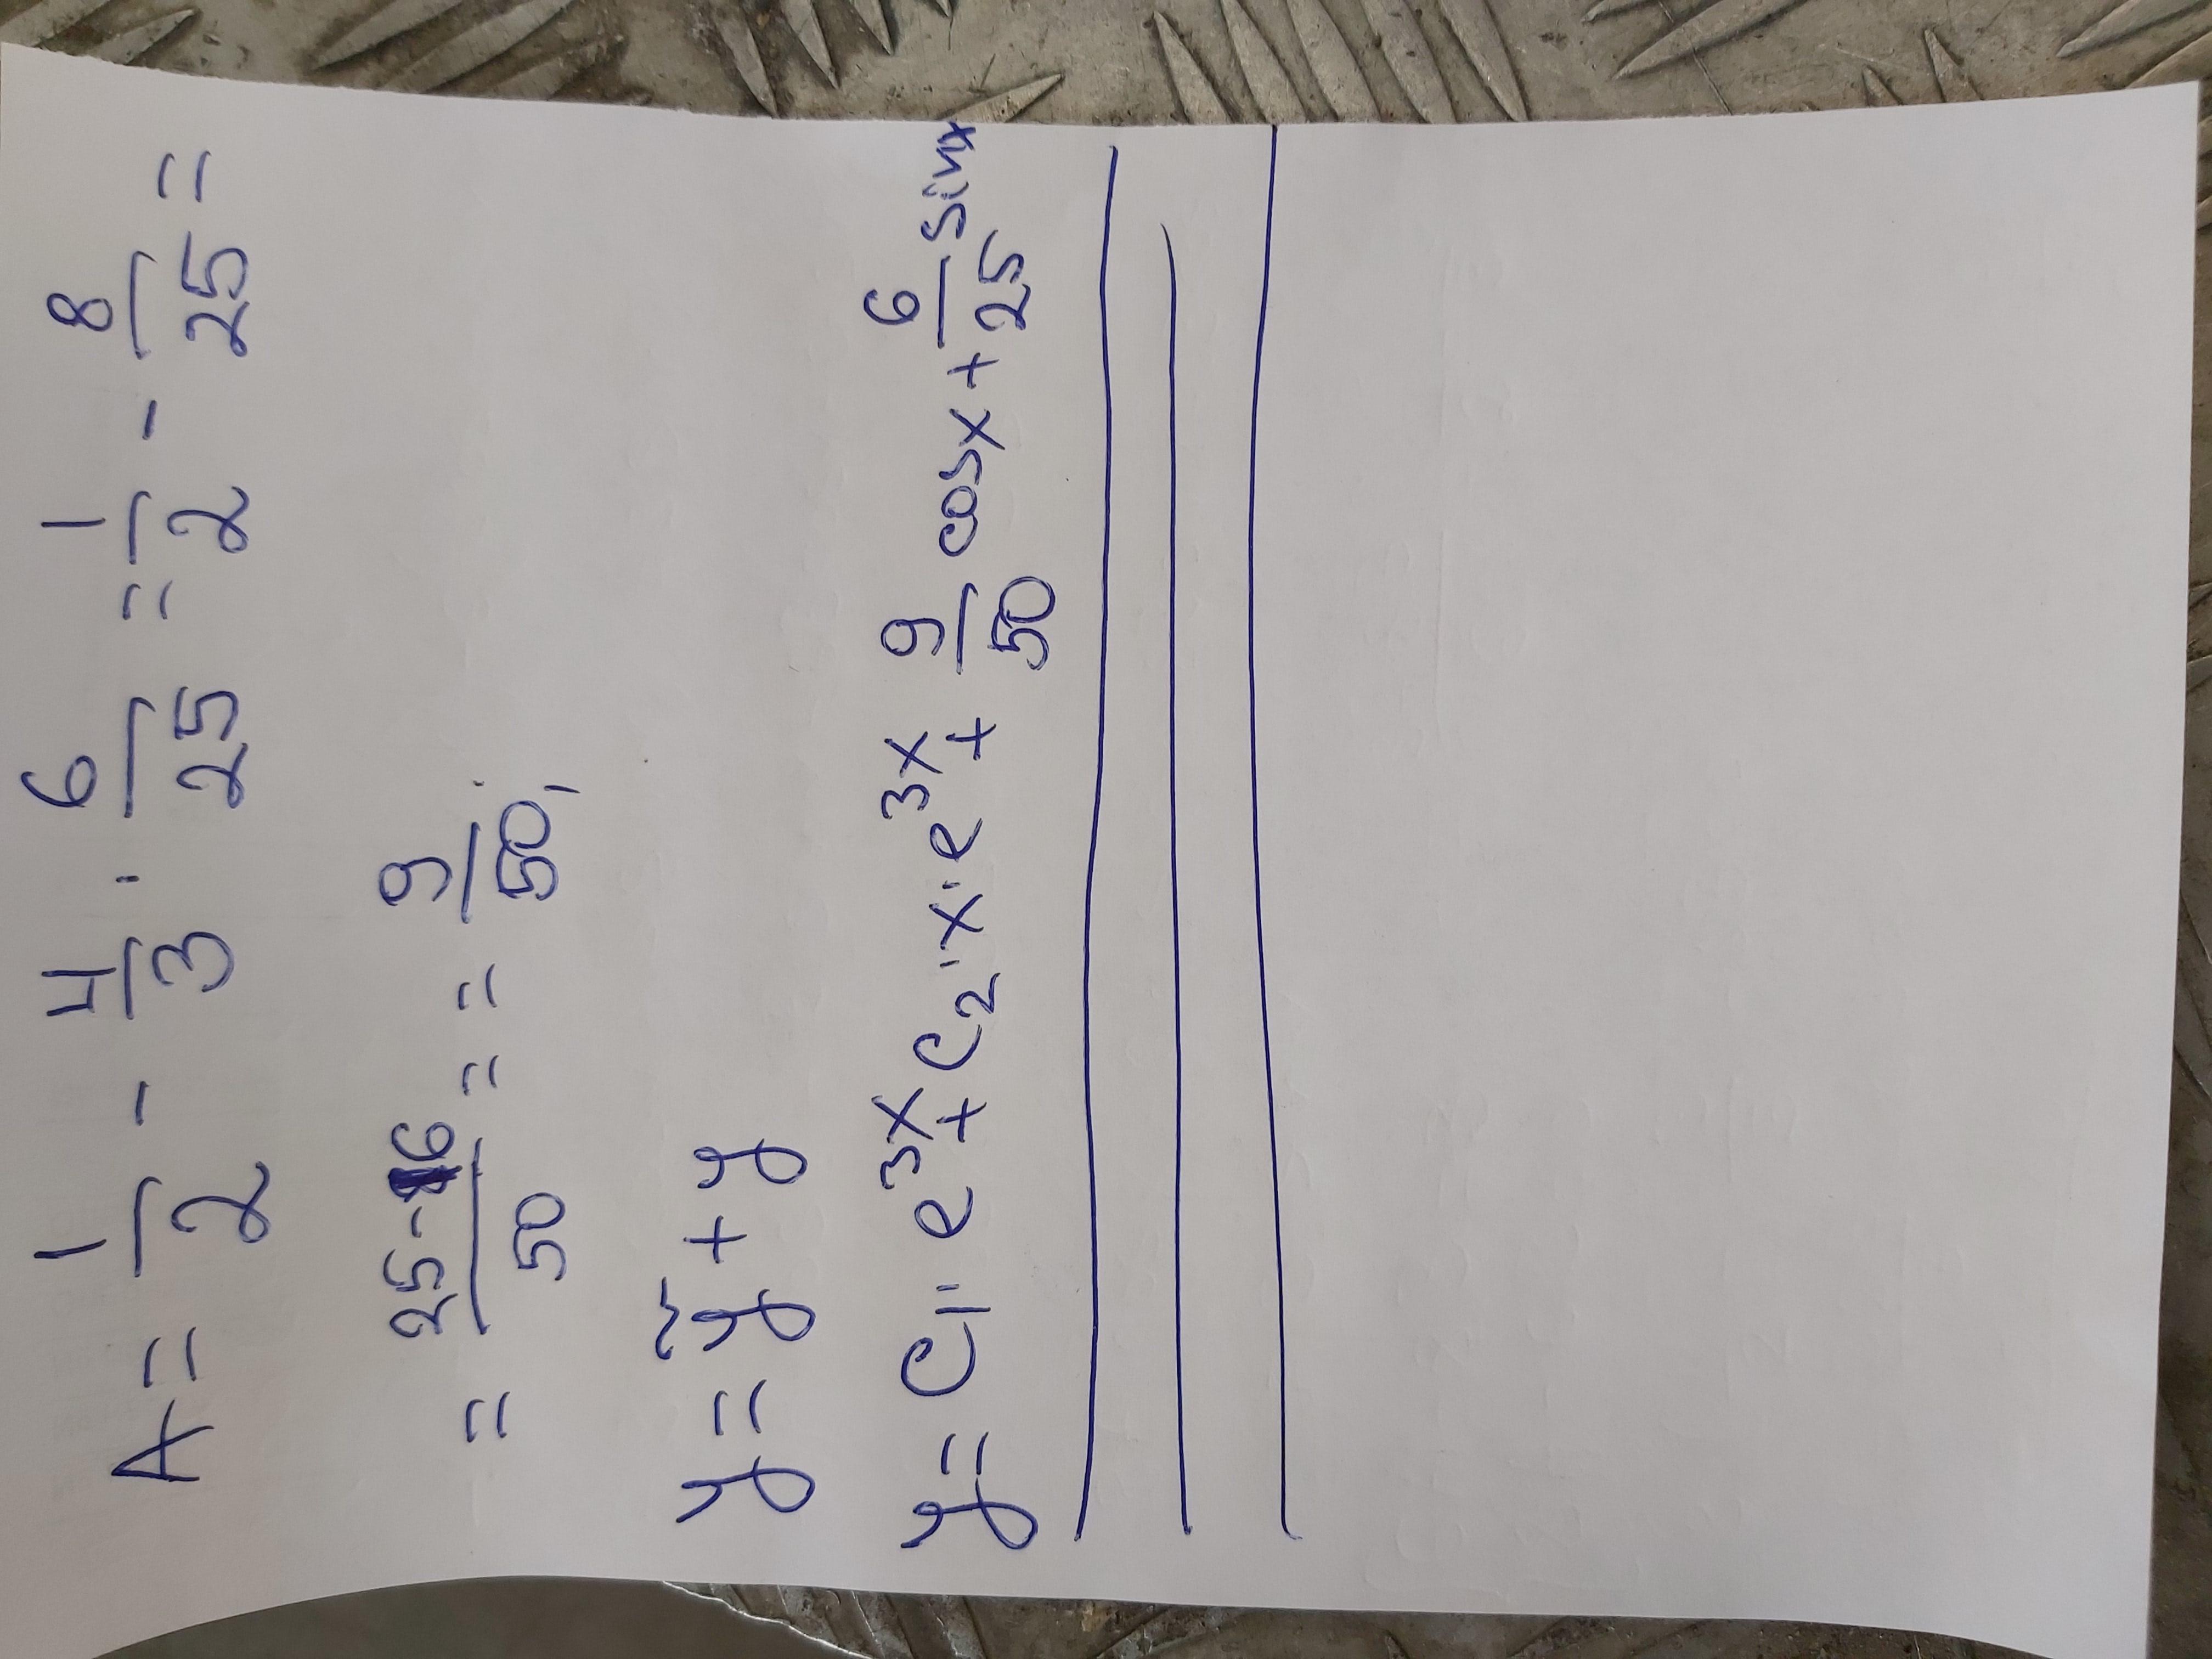 A = 1/2 - 4/3 · 6/25 = 1/2 - 8/25 =
= 25-16/50 = = 9/50;
y = ỹ + y
y = C₁·e^3x + C₂·x·e^3x + 9/50 cosx + 6/25 sinx